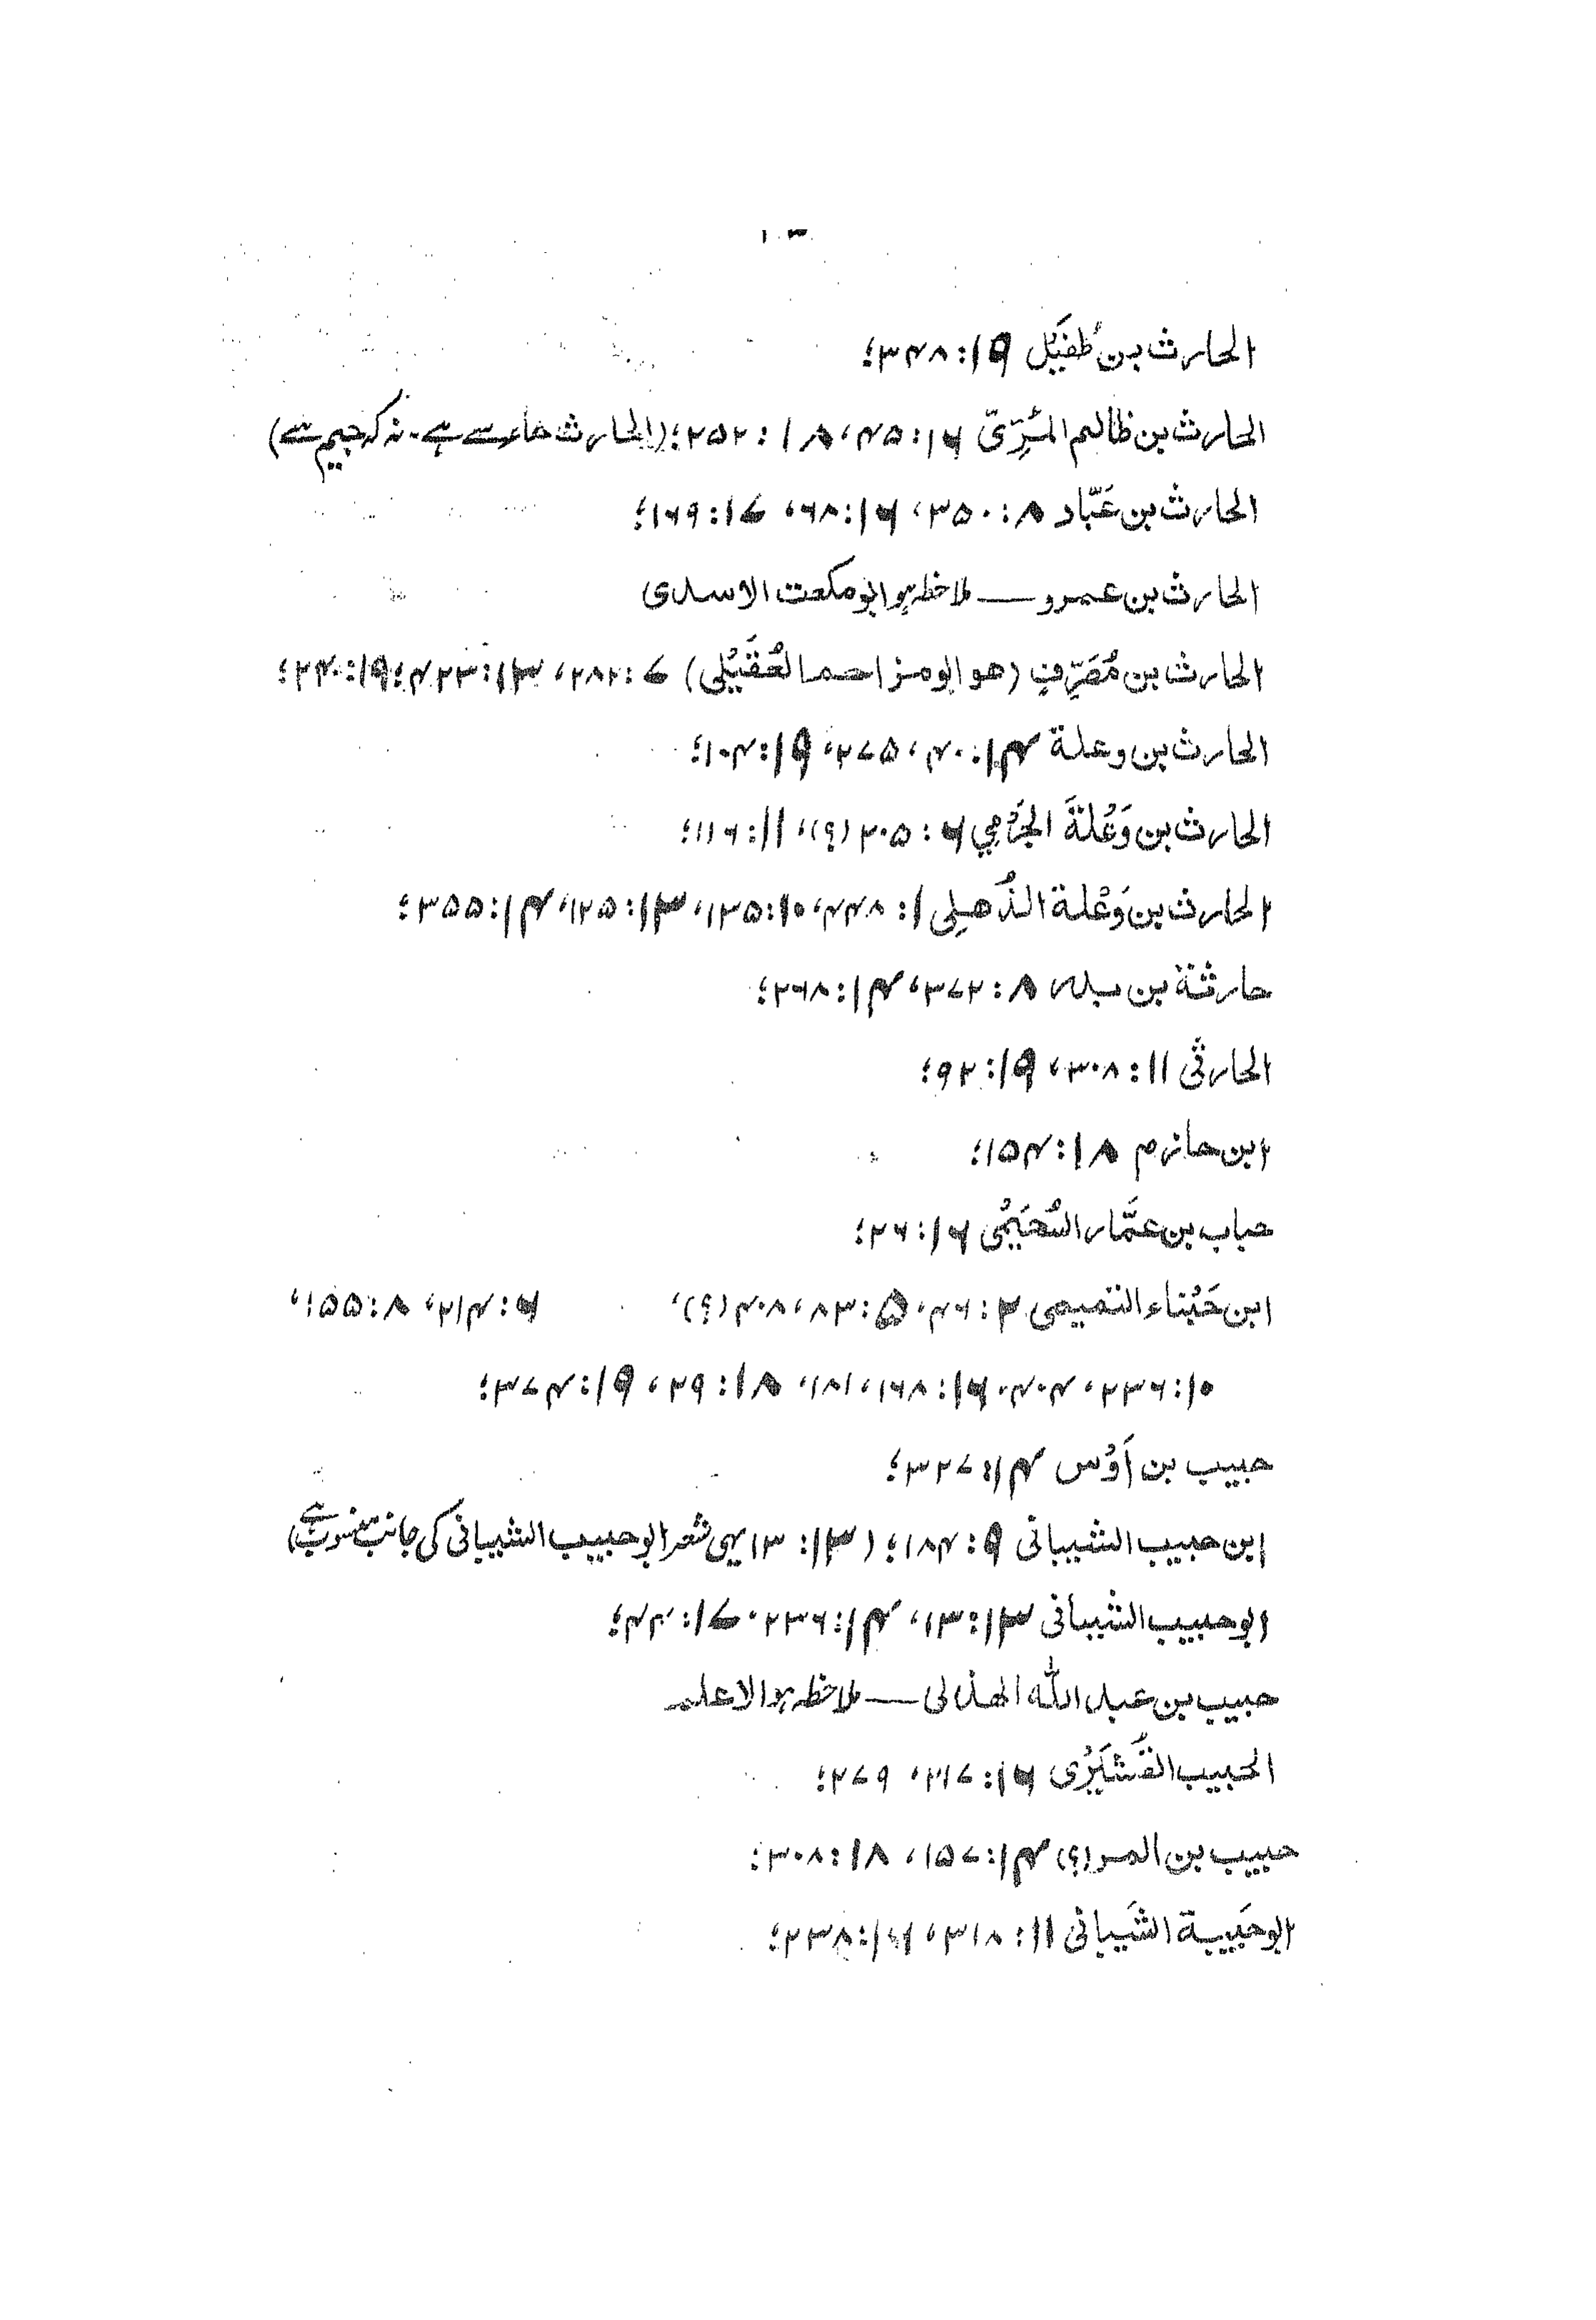 ۱۰۳
الحارث بن طُفَيل ۱۹: ۳۴۸؛
الحارث بن ظالم المُرِّيّ ۱۶: ۴۵، ۱۸: ۲۵۲؛ (الحارث حاء سے ہے۔ نہ کہ جیم سے)
الحارث بن عَبّاد ۸: ۳۵۰، ۱۶: ۶۸، ۱۷: ۱۶۹؛
الحارث بن عمرو — ملاحظہ ہو ابو مكعت الاسدى
الحارث بن مُصَرِّفٍ (هو ابو مزاحم العُقَيْلى) ۷: ۲۸۲، ۱۳: ۴۲۳؛ ۱۹: ۲۴۰؛
الحارث بن وعلة ۱۴: ۴۰، ۲۷۵، ۱۹: ۱۰۴؛
الحارث بن وَعْلَةَ الجَرْمِي ۶: ۲۰۵ (؟)، ۱۱: ۱۱۶؛
الحارث بن وَعْلة الذُّهلِى ۱: ۴۴۸، ۱۰: ۱۳۵، ۱۳: ۱۲۵، ۱۴: ۳۵۵؛
حارثة بن بدر ۸: ۳۷۲، ۱۴: ۲۶۸؛
الحارثى ۱۱: ۳۰۸، ۱۹: ۹۲؛
ابن حازم ۱۸: ۱۵۴؛
حباب بن عمَّار السُّحَيْمى ۱۶: ۲۶؛
ابن حَبْناء التميمى ۲: ۴۶، ۵: ۸۳، ۴۰۸ (؟)، ۶: ۲۱۴، ۸: ۱۵۵،
۱۰: ۲۳۶، ۴۰۴، ۱۶: ۱۶۸، ۱۸۱، ۱۸: ۲۹، ۱۹: ۳۷۴؛
حبيب بن أَوْس ۱۴: ۳۲۷؛
ابن حبيب الشيبانى ۹: ۱۸۴؛ (۱۳: ۱۳ یہی شعر ابو حبیب الشیبانی کی جانب منسوب ہے)
ابو حبيب الشيبانى ۱۳: ۱۳، ۱۴: ۲۳۶، ۱۷: ۴۴؛
حبيب بن عبد الله الهذلى — ملاحظہ ہو الاعلم
الحبيب القُشَيْرى ۱۶: ۲۱۷، ۲۷۹؛
حبيب بن المر (؟) ۱۴: ۱۵۷، ۱۸: ۳۰۸؛
ابو حَبِيبة الشَيبانى ۱۱: ۳۱۸، ۱۶: ۲۳۸؛